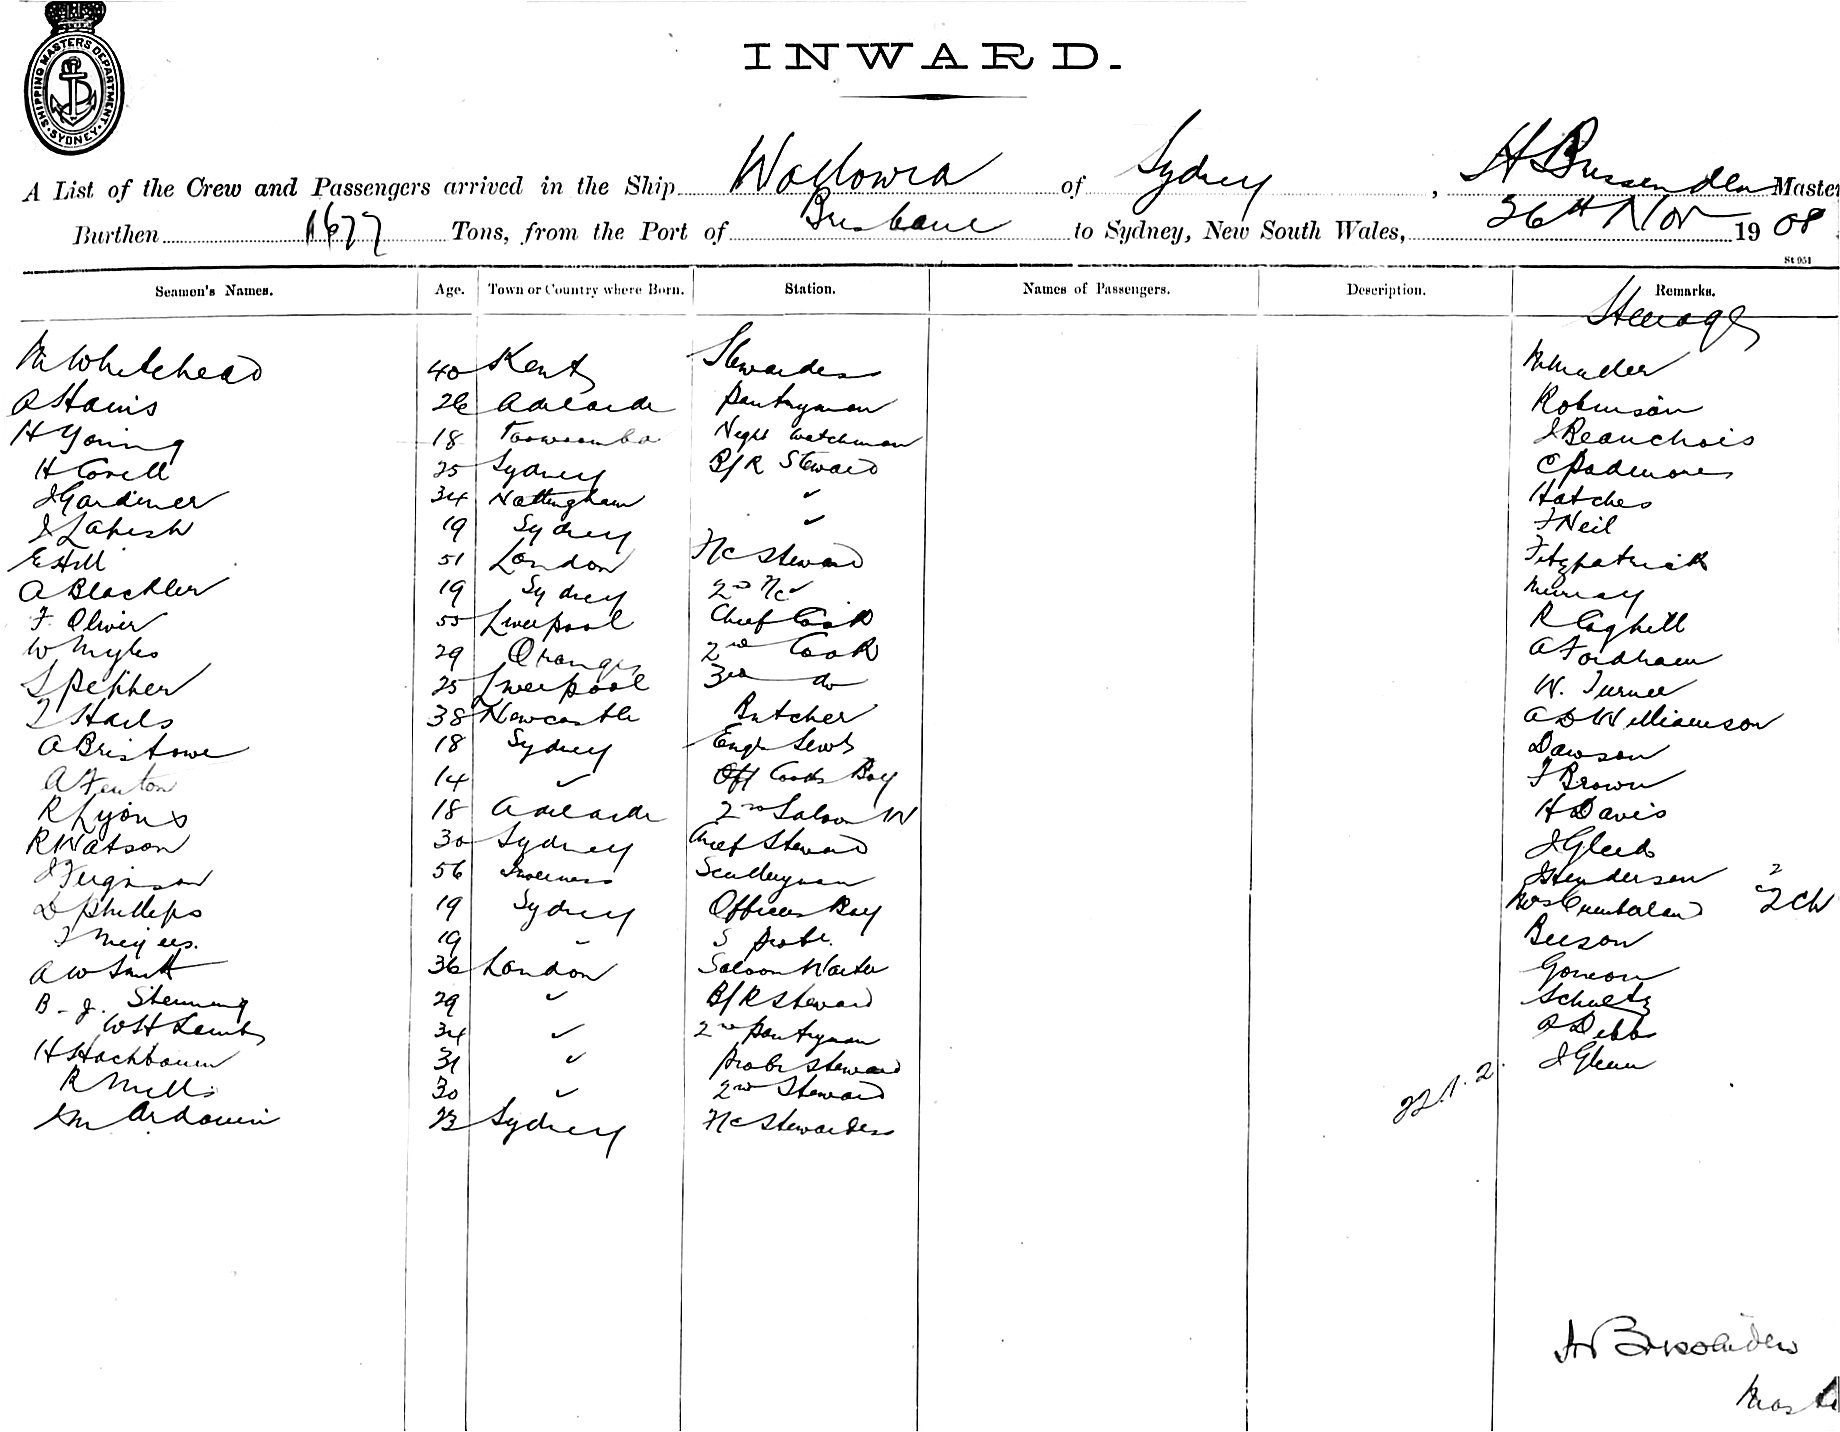 SHIPPING MASTERS DEPARTMENT
SYDNEY
INWARD.
A List of the Crew and Passengers arrived in the Ship Wollowra of Sydney, H Brissenden Master
Burthen 1677 Tons, from the Port of Brisbane to Sydney, New South Wales, 26th Nov 1908
St 951
Seamen's Names. Age. Town or Country where Born. Station. Names of Passengers. Description. Remarks.
Steerage
M Whitehead 40 Kent Stewardess
A Harris 26 Adelaide Pantryman Robinson
H Young 18 Toowoomba Night Watchman J Beauchois
H Covell 25 Sydney B/R Steward C Padmore
J Gardiner 34 Nottingham " Hatches
J Lakish 19 Sydney " F Neil
E Hill 51 London F/C Steward Fitzpatrick
A Blackler 19 Sydney 2nd F/C Murray
F. Oliver 55 Liverpool Chief Cook R Coghill
W Myles 29 Orange 2nd Cook A Fordham
S Pepper 25 Liverpool 3rd do W. Turner
T Hails 38 Newcastle Butcher A D Williamson
A Bristowe 18 Sydney Engr Servt Dawson
A Fenton 14 " Cooks Boy F Brown
R Lyons 18 Adelaide 2nd Saloon W H Davis
R Watson 30 Sydney Chief Steward J Gleed
J Ferguson 56 Inverness Sculleryman J Henderson 2
D Phillips 19 Sydney Officers Boy Mrs Cumberland 2 Ch
J Meyers. 19 " S Probr. Beeson
A W Smith 36 London Saloon Waiter
B. J. Stenning 29 " B/R Steward Schultz
W H Lamb 34 " 2nd Pantryman A Debb
H Hachbauer 31 " Probr Steward J Glenn
R Mills 30 " 2nd Steward
Ardouin 23 Sydney F/C Stewardess
22.1.2.
H Brissenden
Master